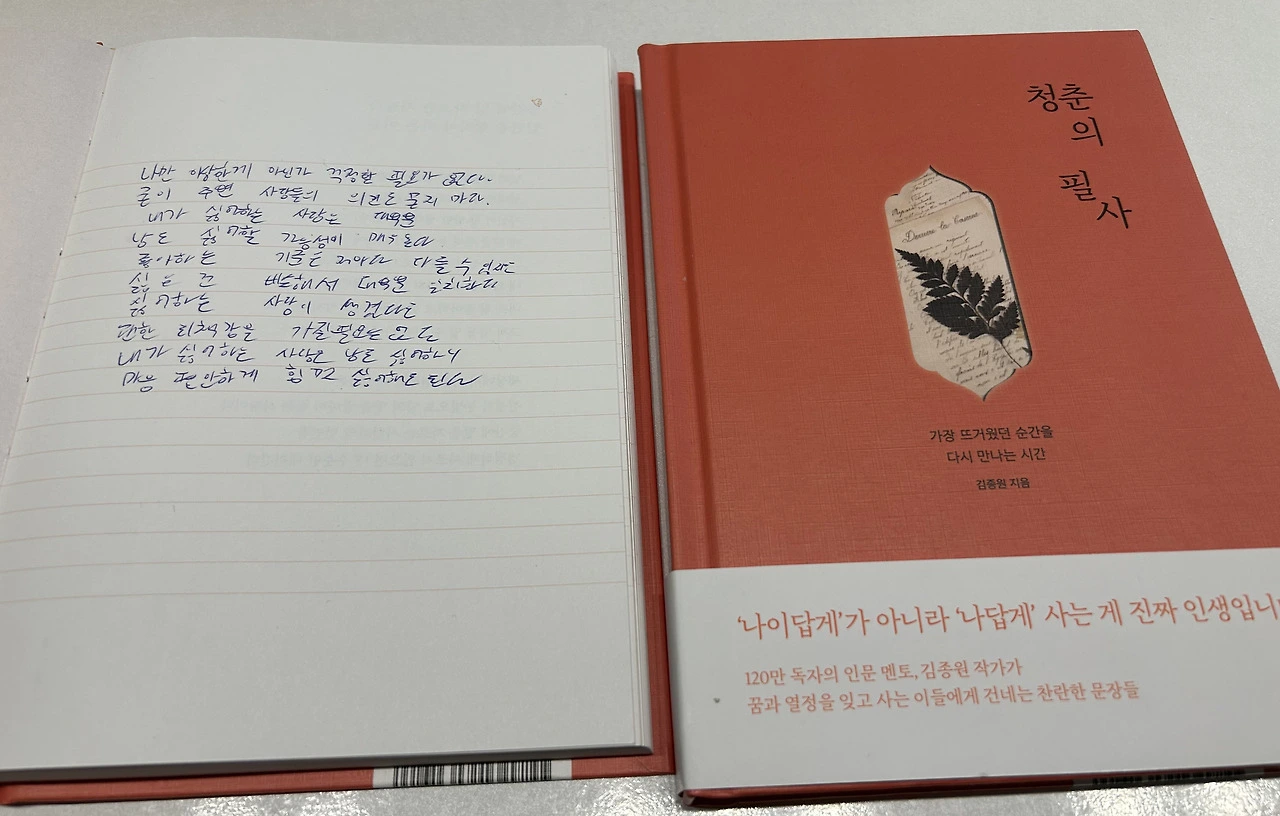 나만 이상한게 아닌가 걱정할 필요가 없다.
굳이 주변 사람들의 의견도 묻지 마라.
내가 싫어하는 사람은 대부분
남도 싫어할 가능성이 매우 높다
좋아하는 기준은 저마다 다를 수 있지만
싫은 건 비슷해서 대부분 일치한다
싫어하는 사람이 생겼다면
괜한 죄책감을 가질 필요는 없다
내가 싫어하는 사람은 남도 싫어하니
마음 편안하게 힘껏 싫어해도 된다
청춘
의
필
사
가장 뜨거웠던 순간을
다시 만나는 시간
김종원 지음
'나이답게'가 아니라 '나답게' 사는 게 진짜 인생입니
120만 독자의 인문 멘토, 김종원 작가가
꿈과 열정을 잊고 사는 이들에게 건네는 찬란한 문장들